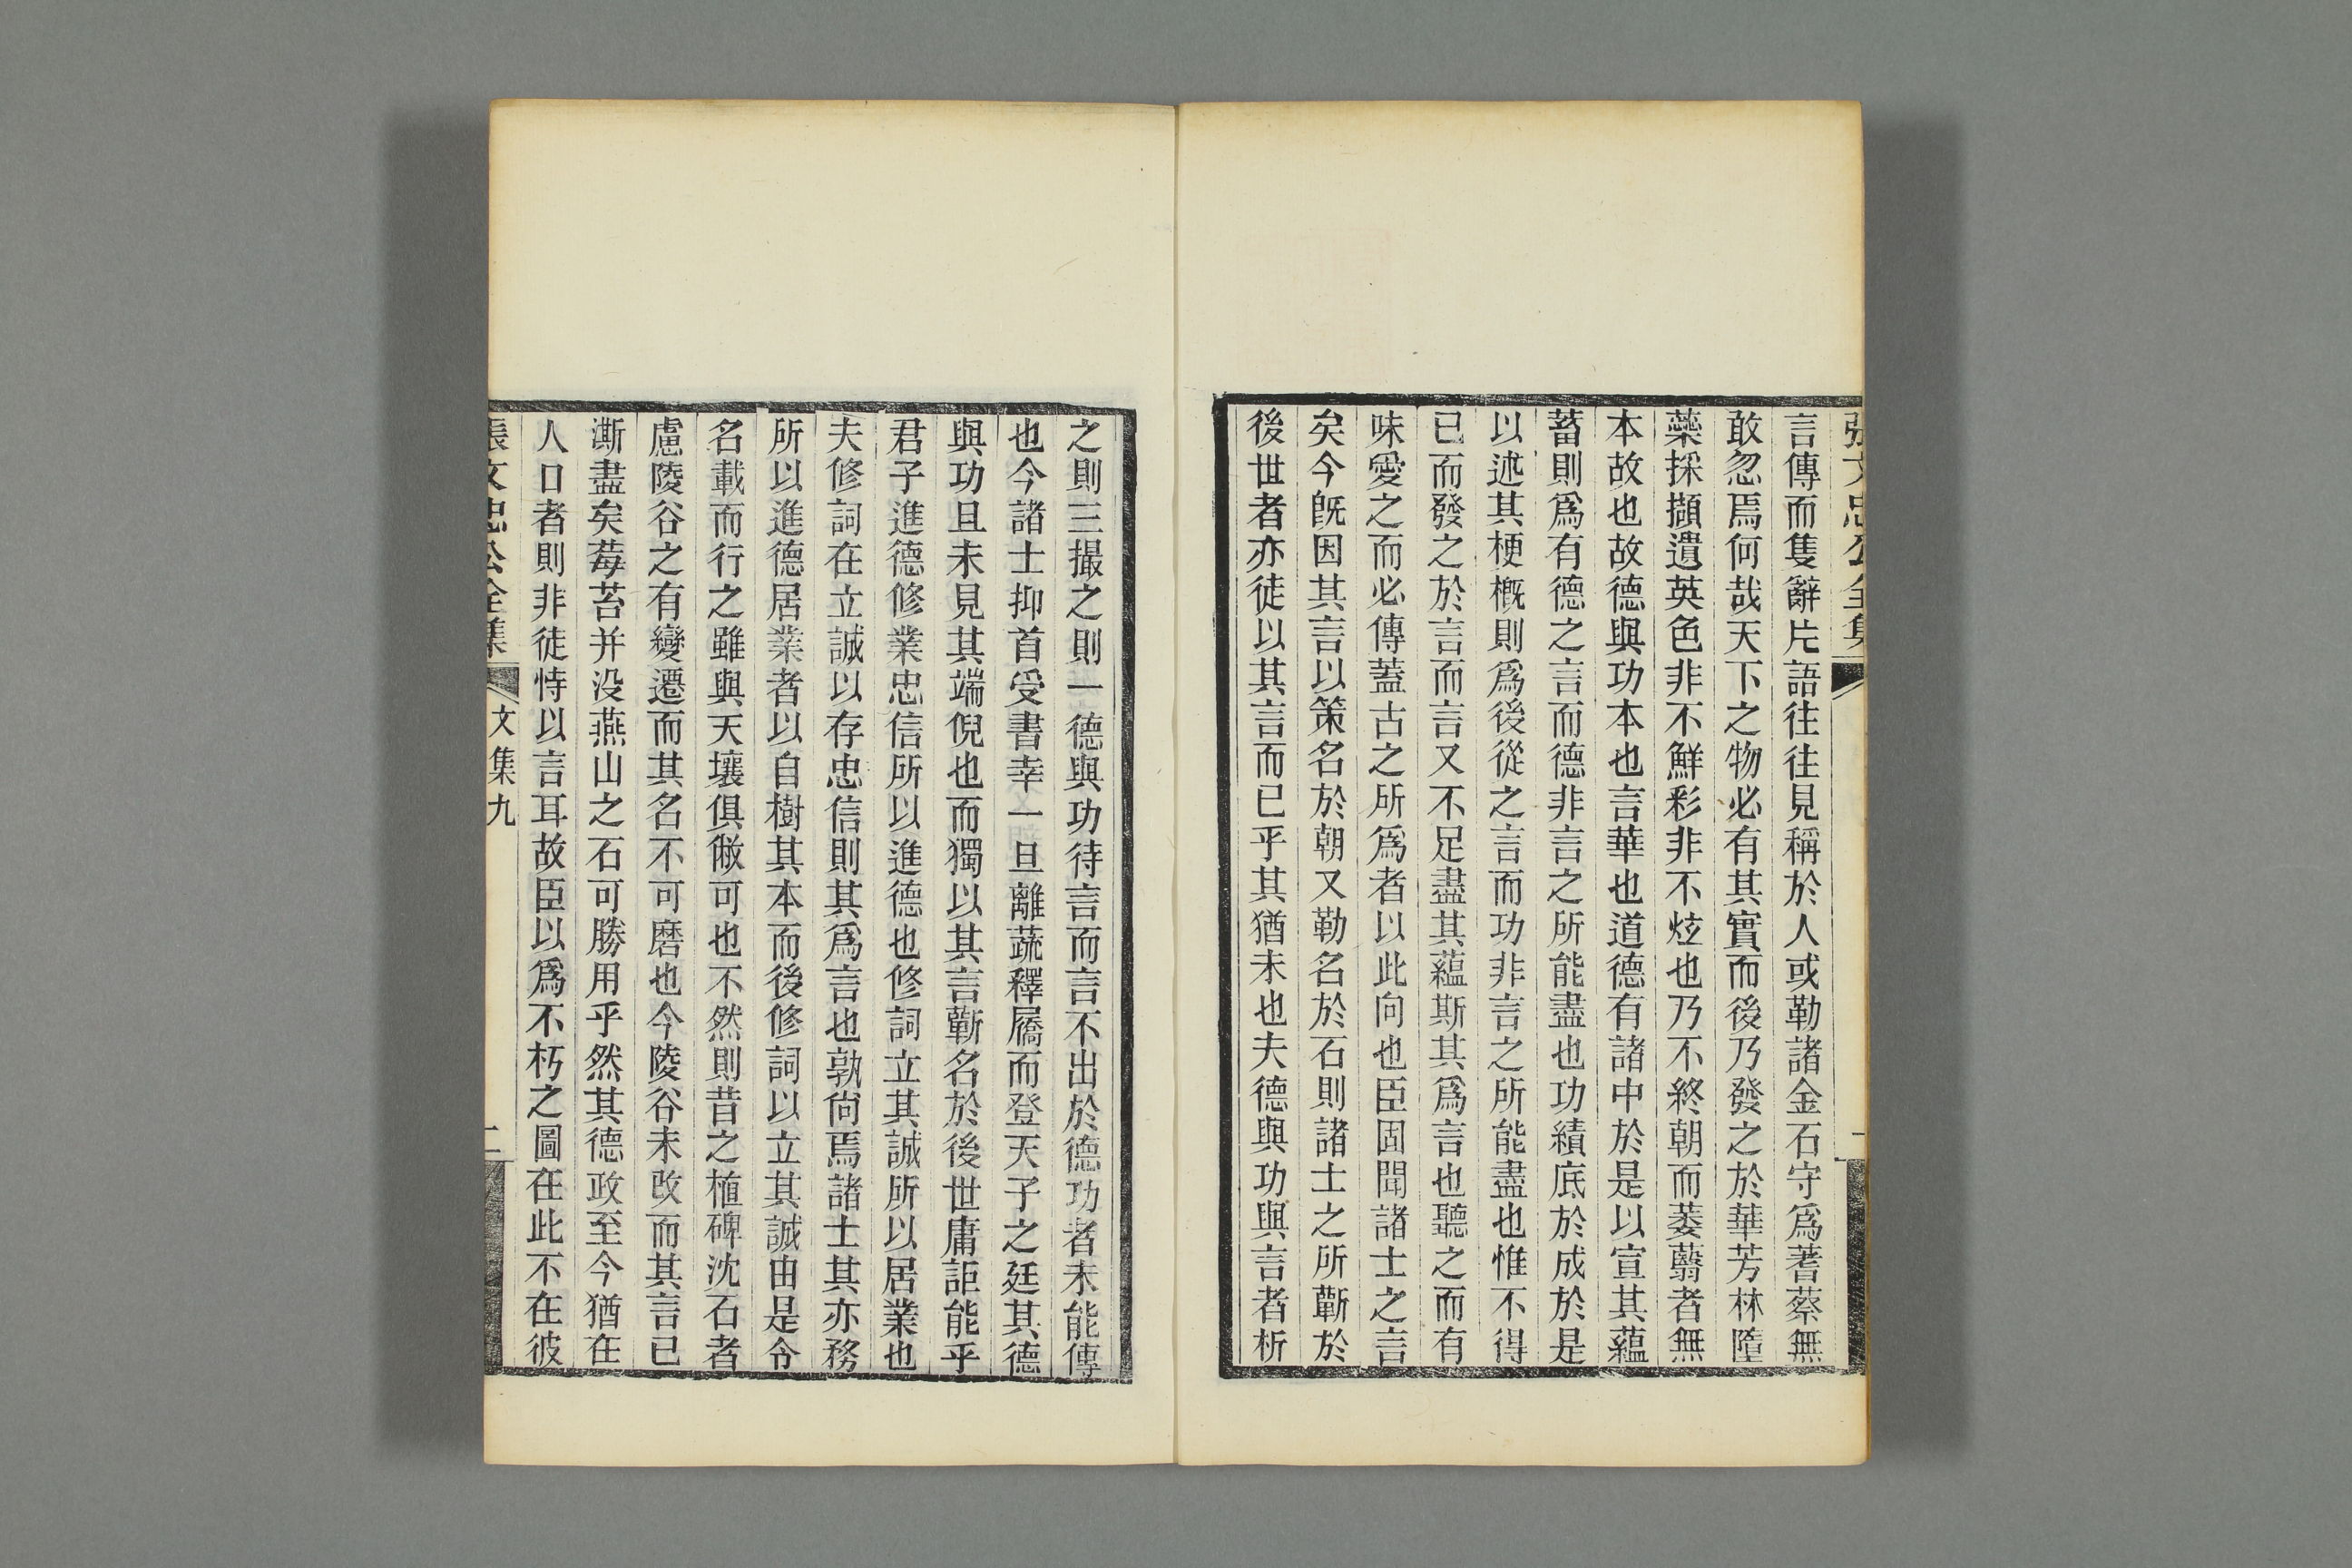 言傳而隻辭片語往往見稱於人或勒諸金石守爲蓍蔡無
敢忽焉何哉天下之物必有其實而後乃發之於華芳林墮
蘂採擷遺英色非不鮮彩非不炫也乃不終朝而萎蘙者無
本故也故德與功本也言華也道德有諸中於是以宣其蘊
蓄則爲有德之言而德非言之所能盡也功績底於成於是
以述其梗概則爲後從之言而功非言之所能盡也惟不得
已而發之於言而言又不足盡其蘊斯其爲言也聽之而有
味愛之而必傳蓋古之所爲者以此向也臣固聞諸士之言
矣今旣因其言以策名於朝又勒名於石則諸士之所蘄於
後世者亦徒以其言而已乎其猶未也夫德與功與言者析
之則三撮之則一德與功待言而言不出於德功者未能傳
也今諸士抑首受書幸一旦離蔬釋屩而登天子之廷其德
與功且未見其端倪也而獨以其言蘄名於後世庸詎能乎
君子進德修業忠信所以進德也修詞立其誠所以居業也
夫修詞在立誠以存忠信則其爲言也孰尙焉諸士其亦務
所以進德居業者以自樹其本而後修詞以立其誠由是令
名載而行之雖與天壤俱敝可也不然則昔之植碑沈石者
慮陵谷之有變遷而其名不可磨也今陵谷未改而其言已
澌盡矣莓苔并没燕山之石可勝用乎然其德政至今猶在
人口者則非徒恃以言耳故臣以爲不朽之圖在此不在彼
張文忠公全集
文集九
二